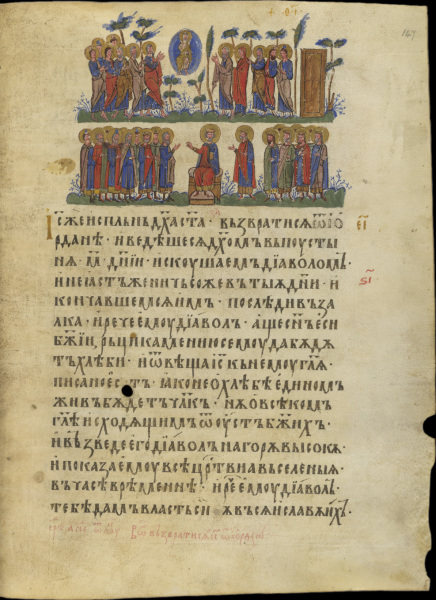 147
І҃сжеисплъньдх҃астⷶа · възвратисѧѿіѡ
рданѣ · иведѣшесѧдх҃омъвьпоусты
нѧ · м҃ · дн҃їи · искоушаемъдїаволомь ·
инеꙗстъженичьсожевътыѧдн҃и · и
кончавшемсѧимъ · послѣдивъза
лка · ирⷱеемоудїавол · ащесн҃ъеси
бж҃їи, рьцикамениюсемоудабѫдѫ
тъхлѣби · иѿвѣщаіс҃кънемоугл҃ѧ
писаноестъ · ꙗконеохлѣбѣединомъ
живъбѫдетъчл҃къ · нѫовсѣкомъ
гл҃ѣисходѧщимъѿоустъбж҃їихъ ·
ивъзведеегодїаволънагорѫвысокѫ ·
ипоказаемоувсѣцр҃твиавъселеныѧ
въчасѣврѣменнѣ · ирⷱеемоудїаволъ ·
тебѣдамъвластьсиѫвъсѫиславѫихъ ·